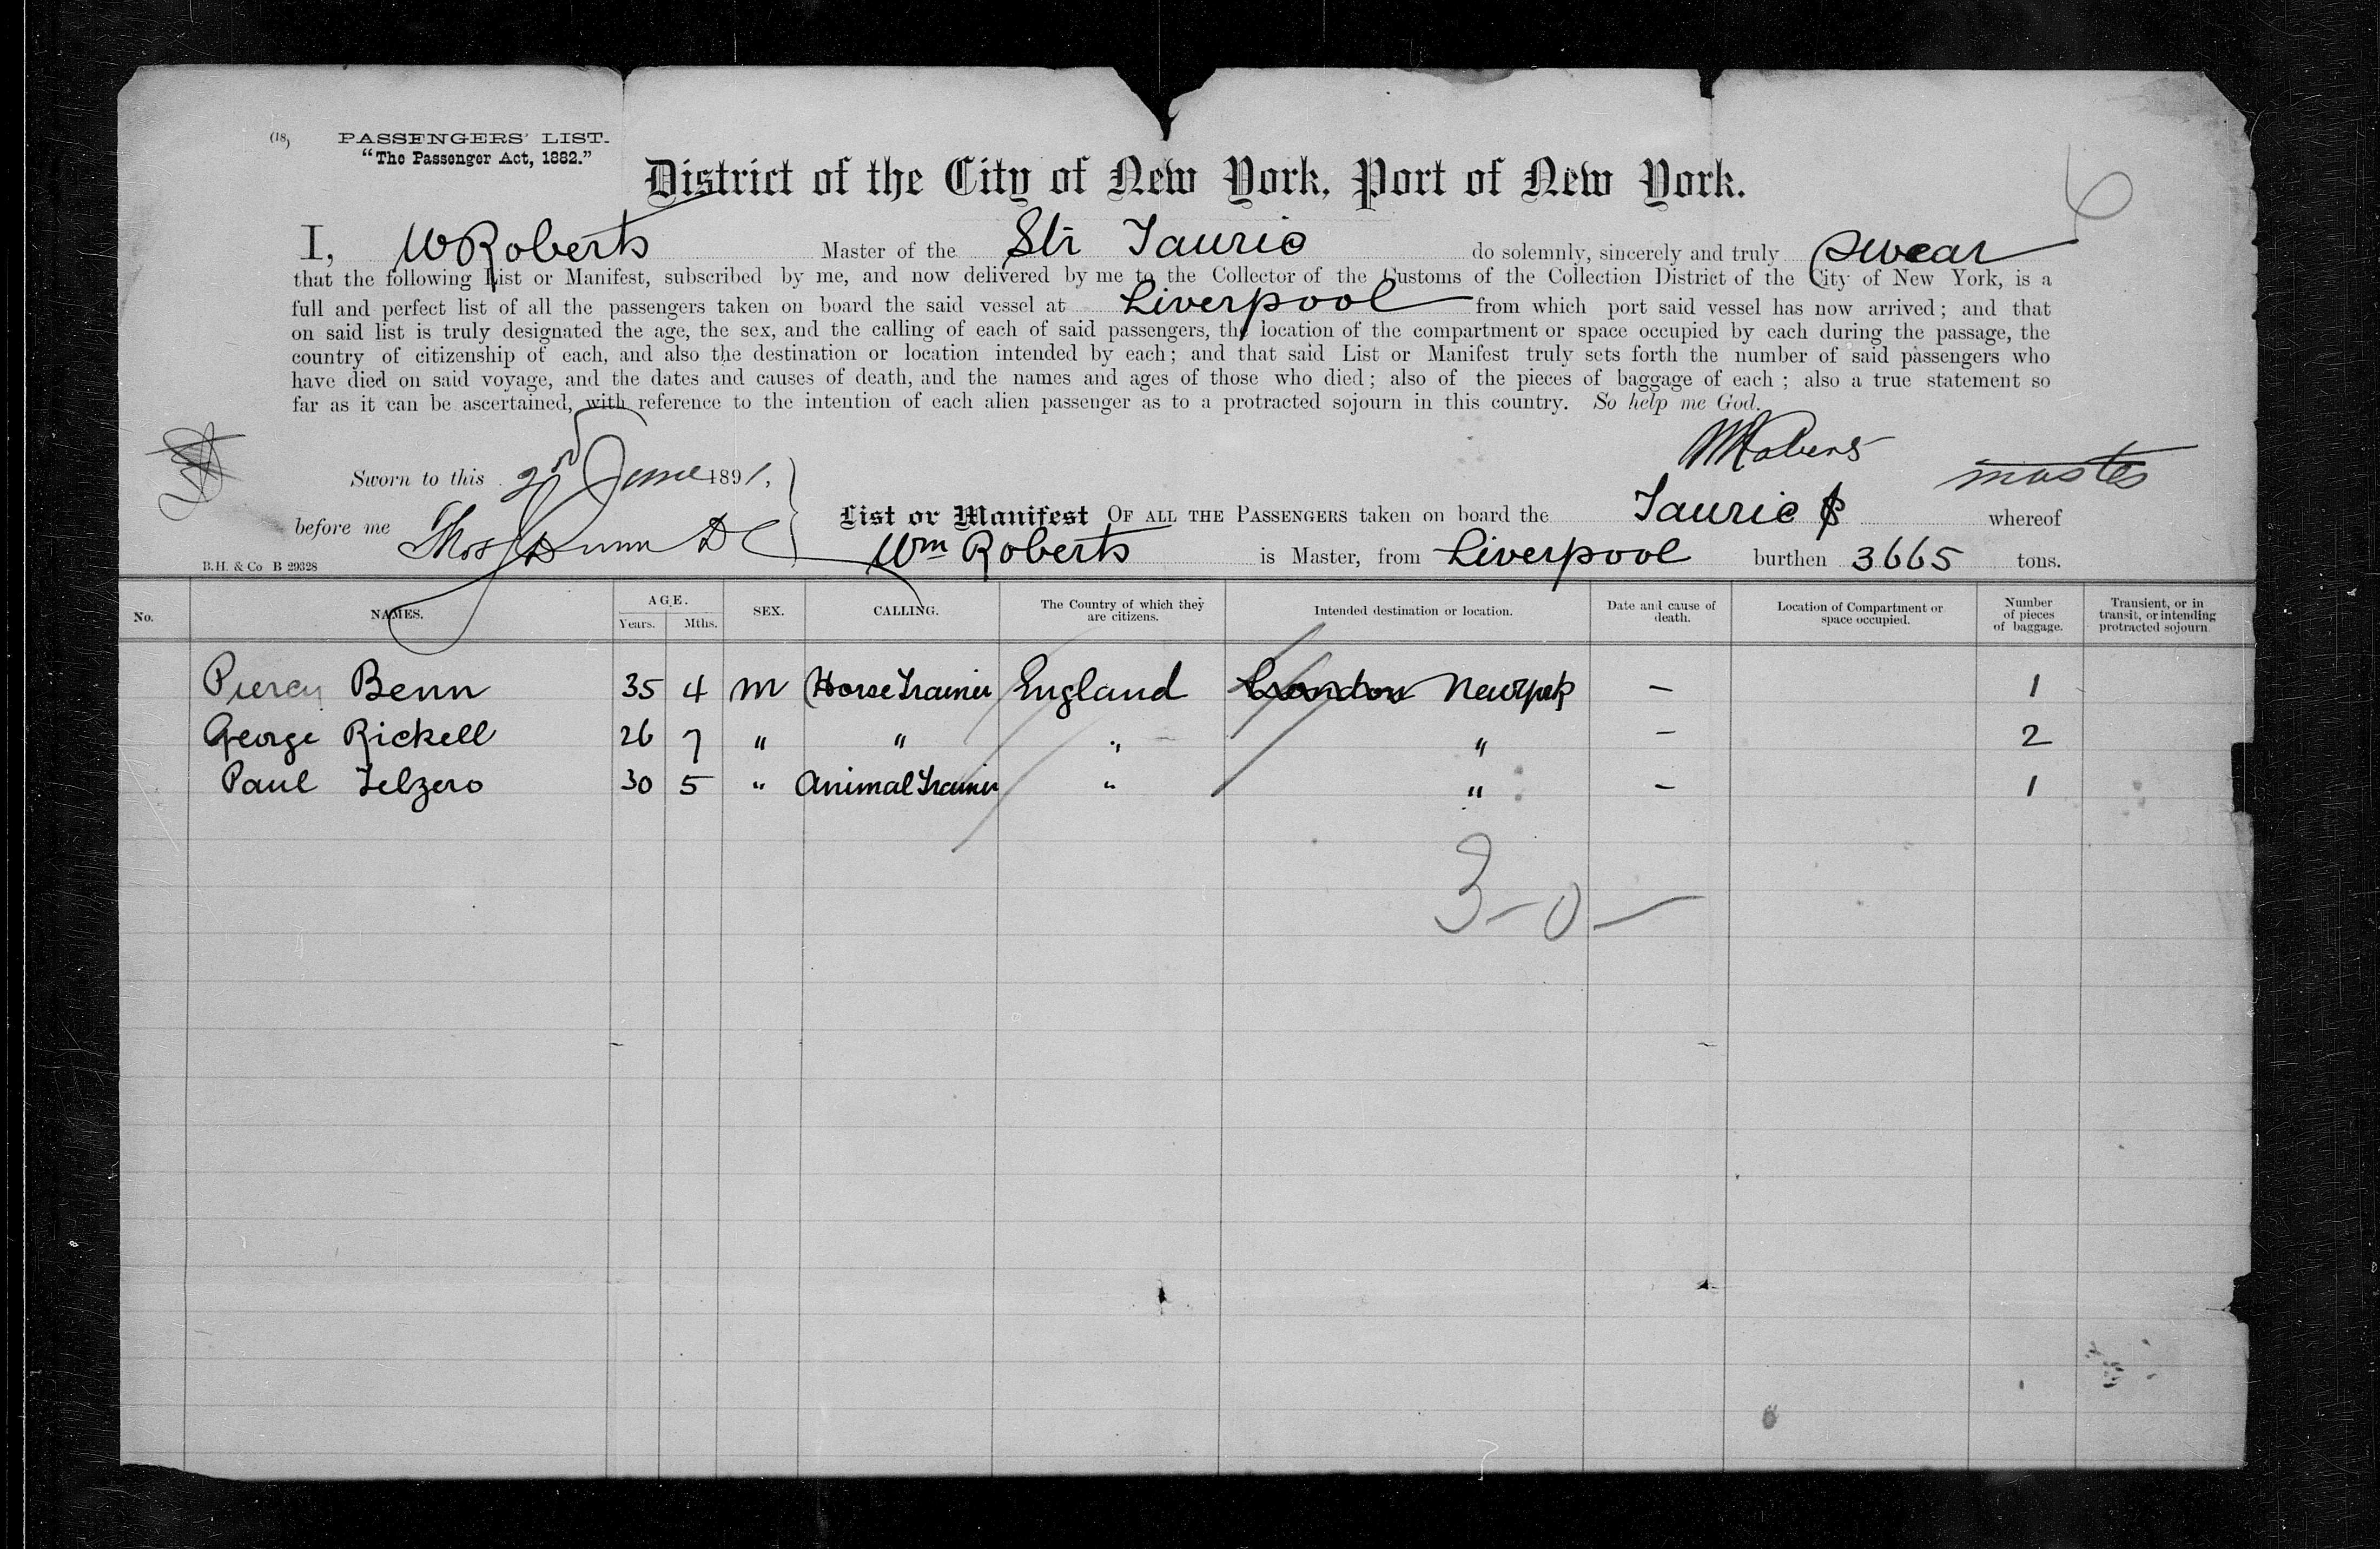 (18)
PASSENGERS' LIST.
"The Passenger Act, 1882."
6
District of the City of New York, Port of New York.
I, W Roberts Master of the Str Tauric do solemnly, sincerely and truly swear
that the following List or Manifest, subscribed by me, and now delivered by me to the Collector of the Customs of the Collection District of the City of New York, is a
full and perfect list of all the passengers taken on board the said vessel at Liverpool from which port said vessel has now arrived; and that
on said list is truly designated the age, the sex, and the calling of each of said passengers, the location of the compartment or space occupied by each during the passage, the
country of citizenship of each, and also the destination or location intended by each; and that said List or Manifest truly sets forth the number of said passengers who
have died on said voyage, and the dates and causes of death, and the names and ages of those who died; also of the pieces of baggage of each; also a true statement so
far as it can be ascertained, with reference to the intention of each alien passenger as to a protracted sojourn in this country. So help me God.
W Roberts
Sworn to this 2nd June 1891, master
before me Thos Dunn DC List or Manifest OF ALL THE PASSENGERS taken on board the Tauric whereof
Wm Roberts is Master, from Liverpool burthen 3665 tons.
B.H. & Co B 29328
No. NAMES. AGE. Years. Mths. SEX. CALLING. The Country of which they are citizens. Intended destination or location. Date and cause of death. Location of Compartment or space occupied. Number of pieces of baggage. Transient, or in transit, or intending protracted sojourn.
Piercy Benn 35 4 m Horse Trainer England London New York — 1
George Rickell 26 7 " " " " — 2
Paul Telzero 30 5 " Animal Trainer " " — 1
3-0-